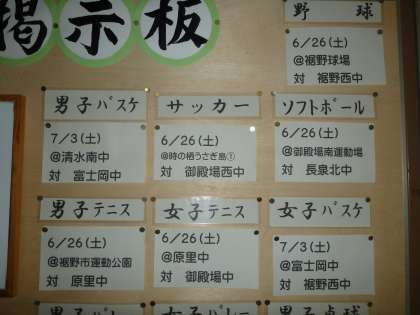 掲示板
野球
6/26(土)
@裾野球場
対 裾野西中
男子バスケ
7/3(土)
@清水南中
対 富士岡中
サッカー
6/26(土)
@時の栖うさぎ島①
対 御殿場西中
ソフトボール
6/26(土)
@御殿場南運動場
対 長泉北中
男子テニス
6/26(土)
@裾野市運動公園
対 原里中
女子テニス
6/26(土)
@原里中
対 御殿場中
女子バスケ
7/3(土)
@富士岡中
対 裾野西中
男子バレー
女子バレー
男子卓球